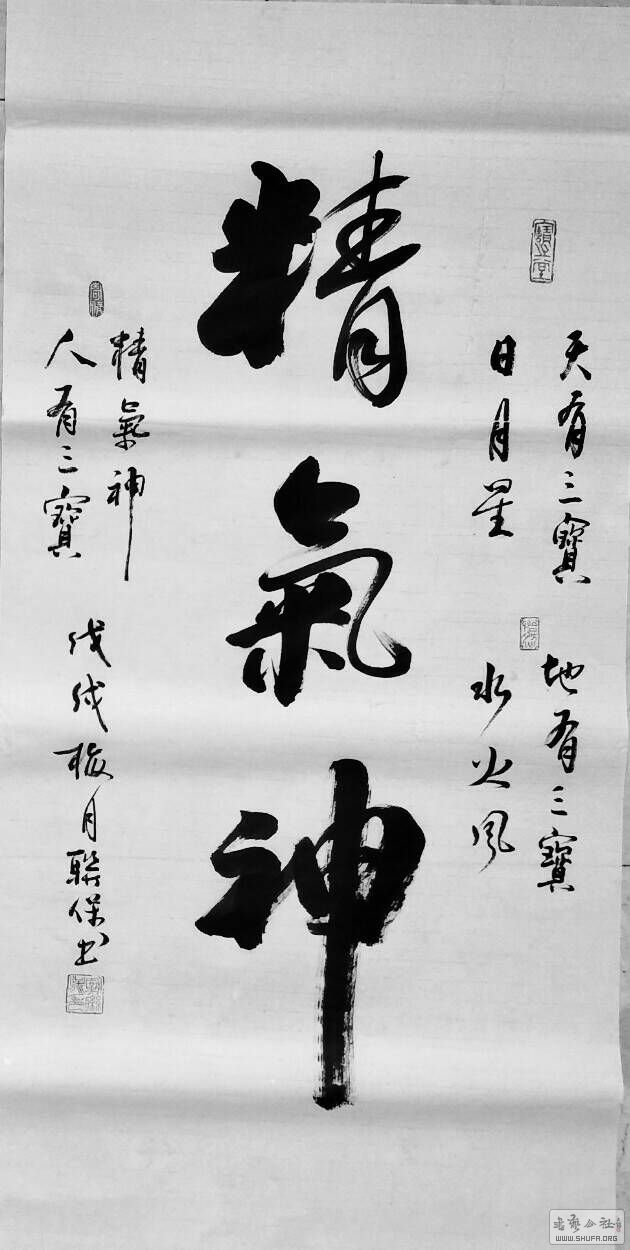 精氣神
天有三寶
日月星
地有三寶
水火風
人有三寶
精氣神
戊戌梅月聯保书
WWW.SHUFA.ORG